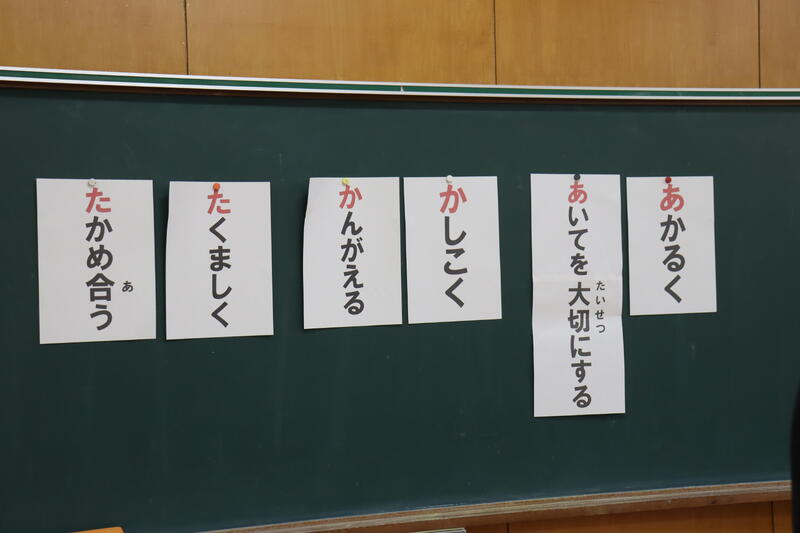 あかるく
あいてを大切にする
たいせつ
かしこく
かんがえる
たくましく
たかめ合う
あ